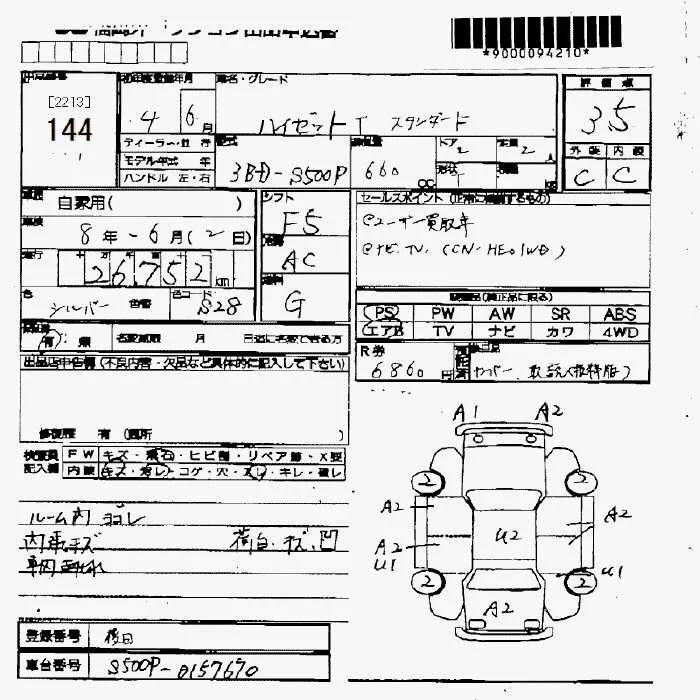 *9000094210*
出品番号 初年度登録年月 車名・グレード 評価点
[2213]
144
4 6月
ハイゼットT スタンダード
3.5
ディーラー・並行
モデル年式 年
ハンドル 左・右
型式 3BD-S500P
排気量 660 CC
ドア 2
定員 2 人
形状
積載 KG
外装 内装
C C
車歴 自家用( )
シフト F5
セールスポイント (正常に機能するもの)
ユーザー買取車
ナビ.TV. (CN-HE01WD)
車検 8年-6月(2日)
冷房 AC
走行 26,752 km
燃料 G
色 シルバー 色替
色コード S28
装備品(純正品に限る)
PS PW AW SR ABS
エアB TV ナビ カワ 4WD
有・無 名変期限 月 日迄に名変できる方
R券 6860円
カバー. 取説(後料版)
出品店申告欄(不良内容・欠品など具体的に記入して下さい)
修復歴 有 (箇所 )
検査員 FW キズ・飛石・ヒビ割・リペア跡・X要
記入欄 内装 キズ・汚レ・コゲ・穴・スレ・キレ・破レ
ルーム内 ヨゴレ
内張キズ 荷台・キズ、凹
A1 A2
2 2
A2 A2
U2
A2
U1 U1
2 2
A2
登録番号 後日
車台番号 S500P-0157670